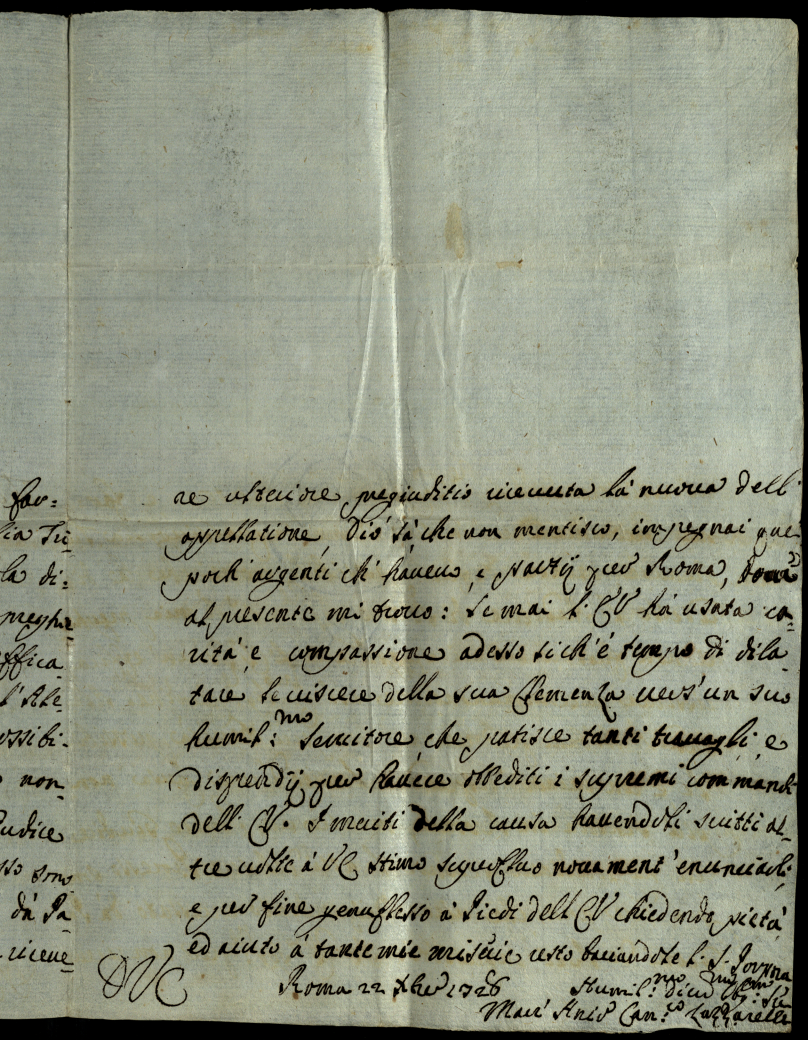 fav=
lia Tu=
la di=
preghi=
effica
l'Ate=
ossibi=
non
iudice
sso sono
dà Pa=
riceve
re ulteriore pregiuditio ricevuta la nuova dell'
appellatione, Dio sà che non mentisco, impegnai que
pochi argenti ch' havevo, e partij per Roma, dove
al presente mi trovo: Se mai l' EV hà usata ca=
rità e compassione adesso sich'è tempo di dila=
tare le viscere della sua Clemenza vers'un suo
humil:mo Servitore, che patisce tanti travagli, e
dispendij per havere obbediti i supremi commandi
dell' EV. I meriti della causa havendoli scritti al=
tre volte à VE stimo superfluo novament'enunciarli,
e per fine genuflesso à Piedi dell EV chiedendo pietà
ed aiuto à tante mie miserie resto baciandole l. S.
DVE
Roma 22 Xbre 1726
Humil:mo